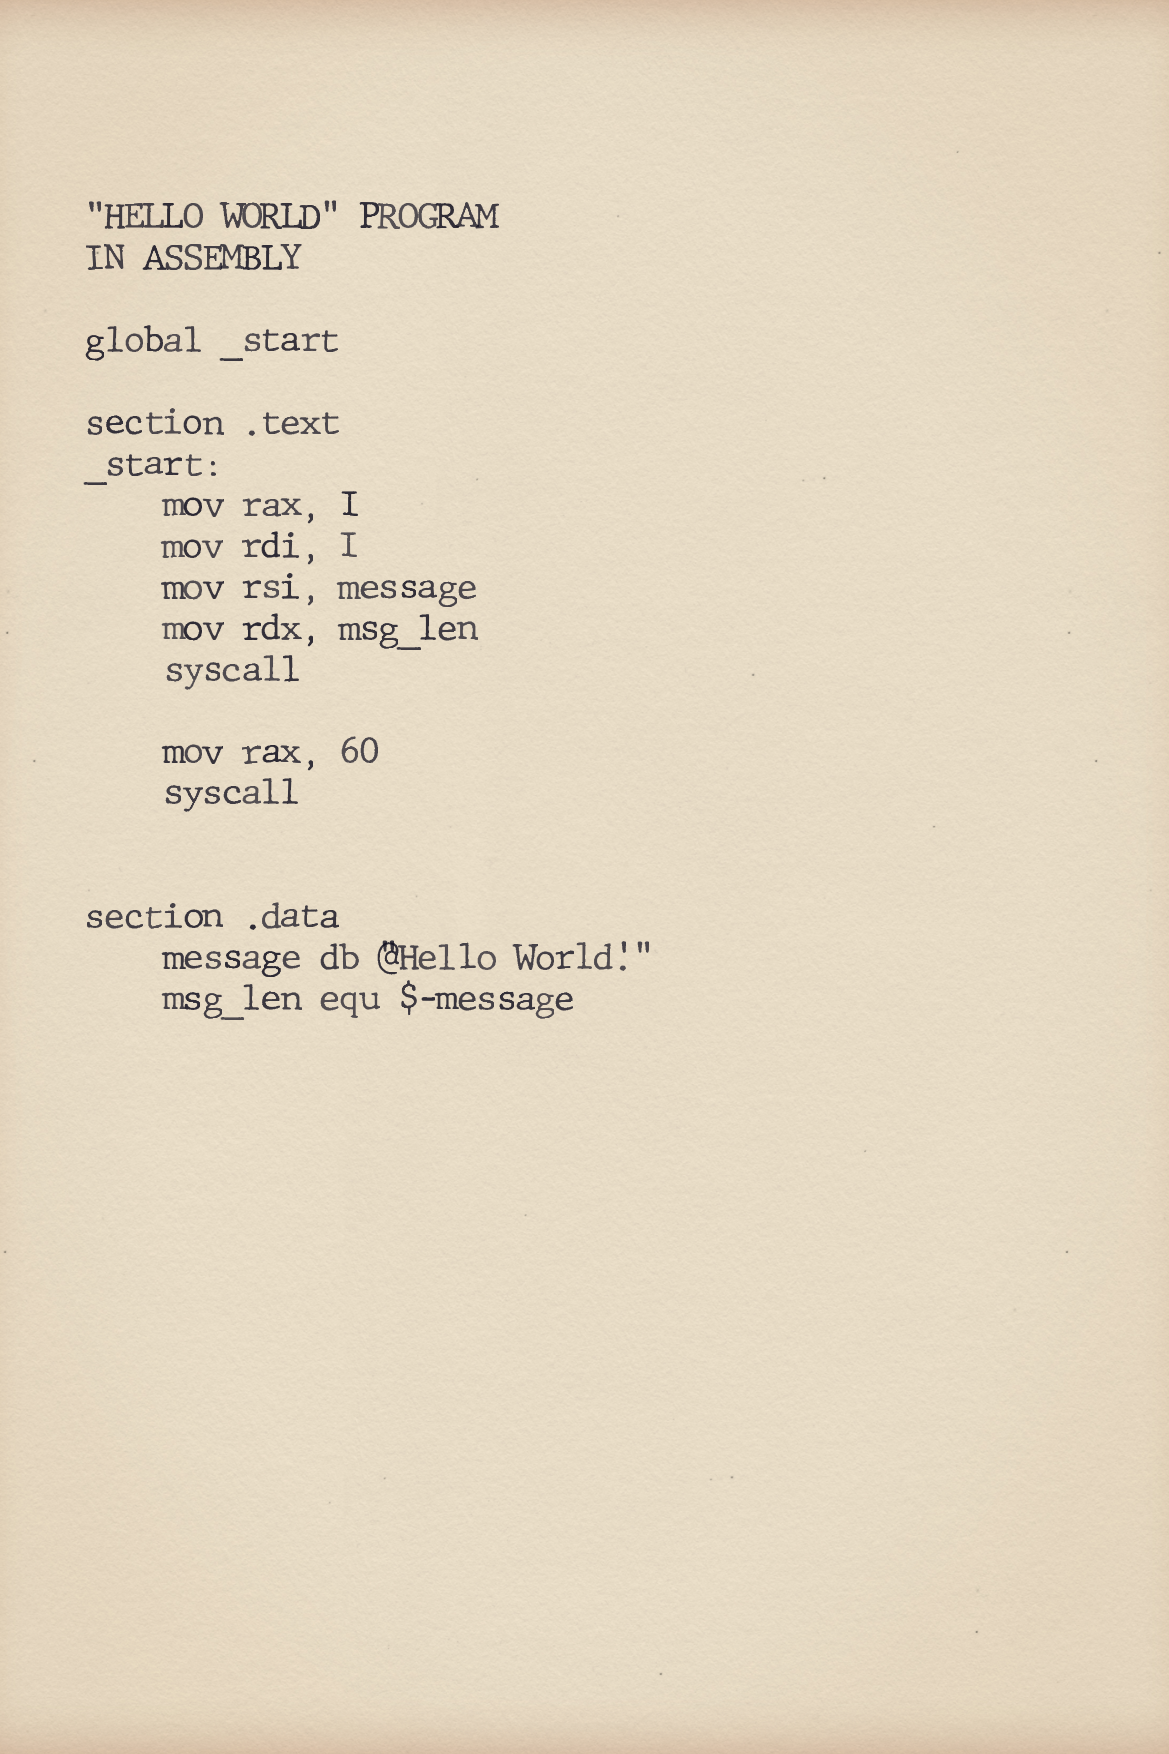 "HELLO WORLD" PROGRAM
IN ASSEMBLY

global _start

section .text
_start:
    mov rax, I
    mov rdi, I
    mov rsi, message
    mov rdx, msg_len
    syscall

    mov rax, 60
    syscall


section .data
    message db "Hello World!"
    msg_len equ $-message